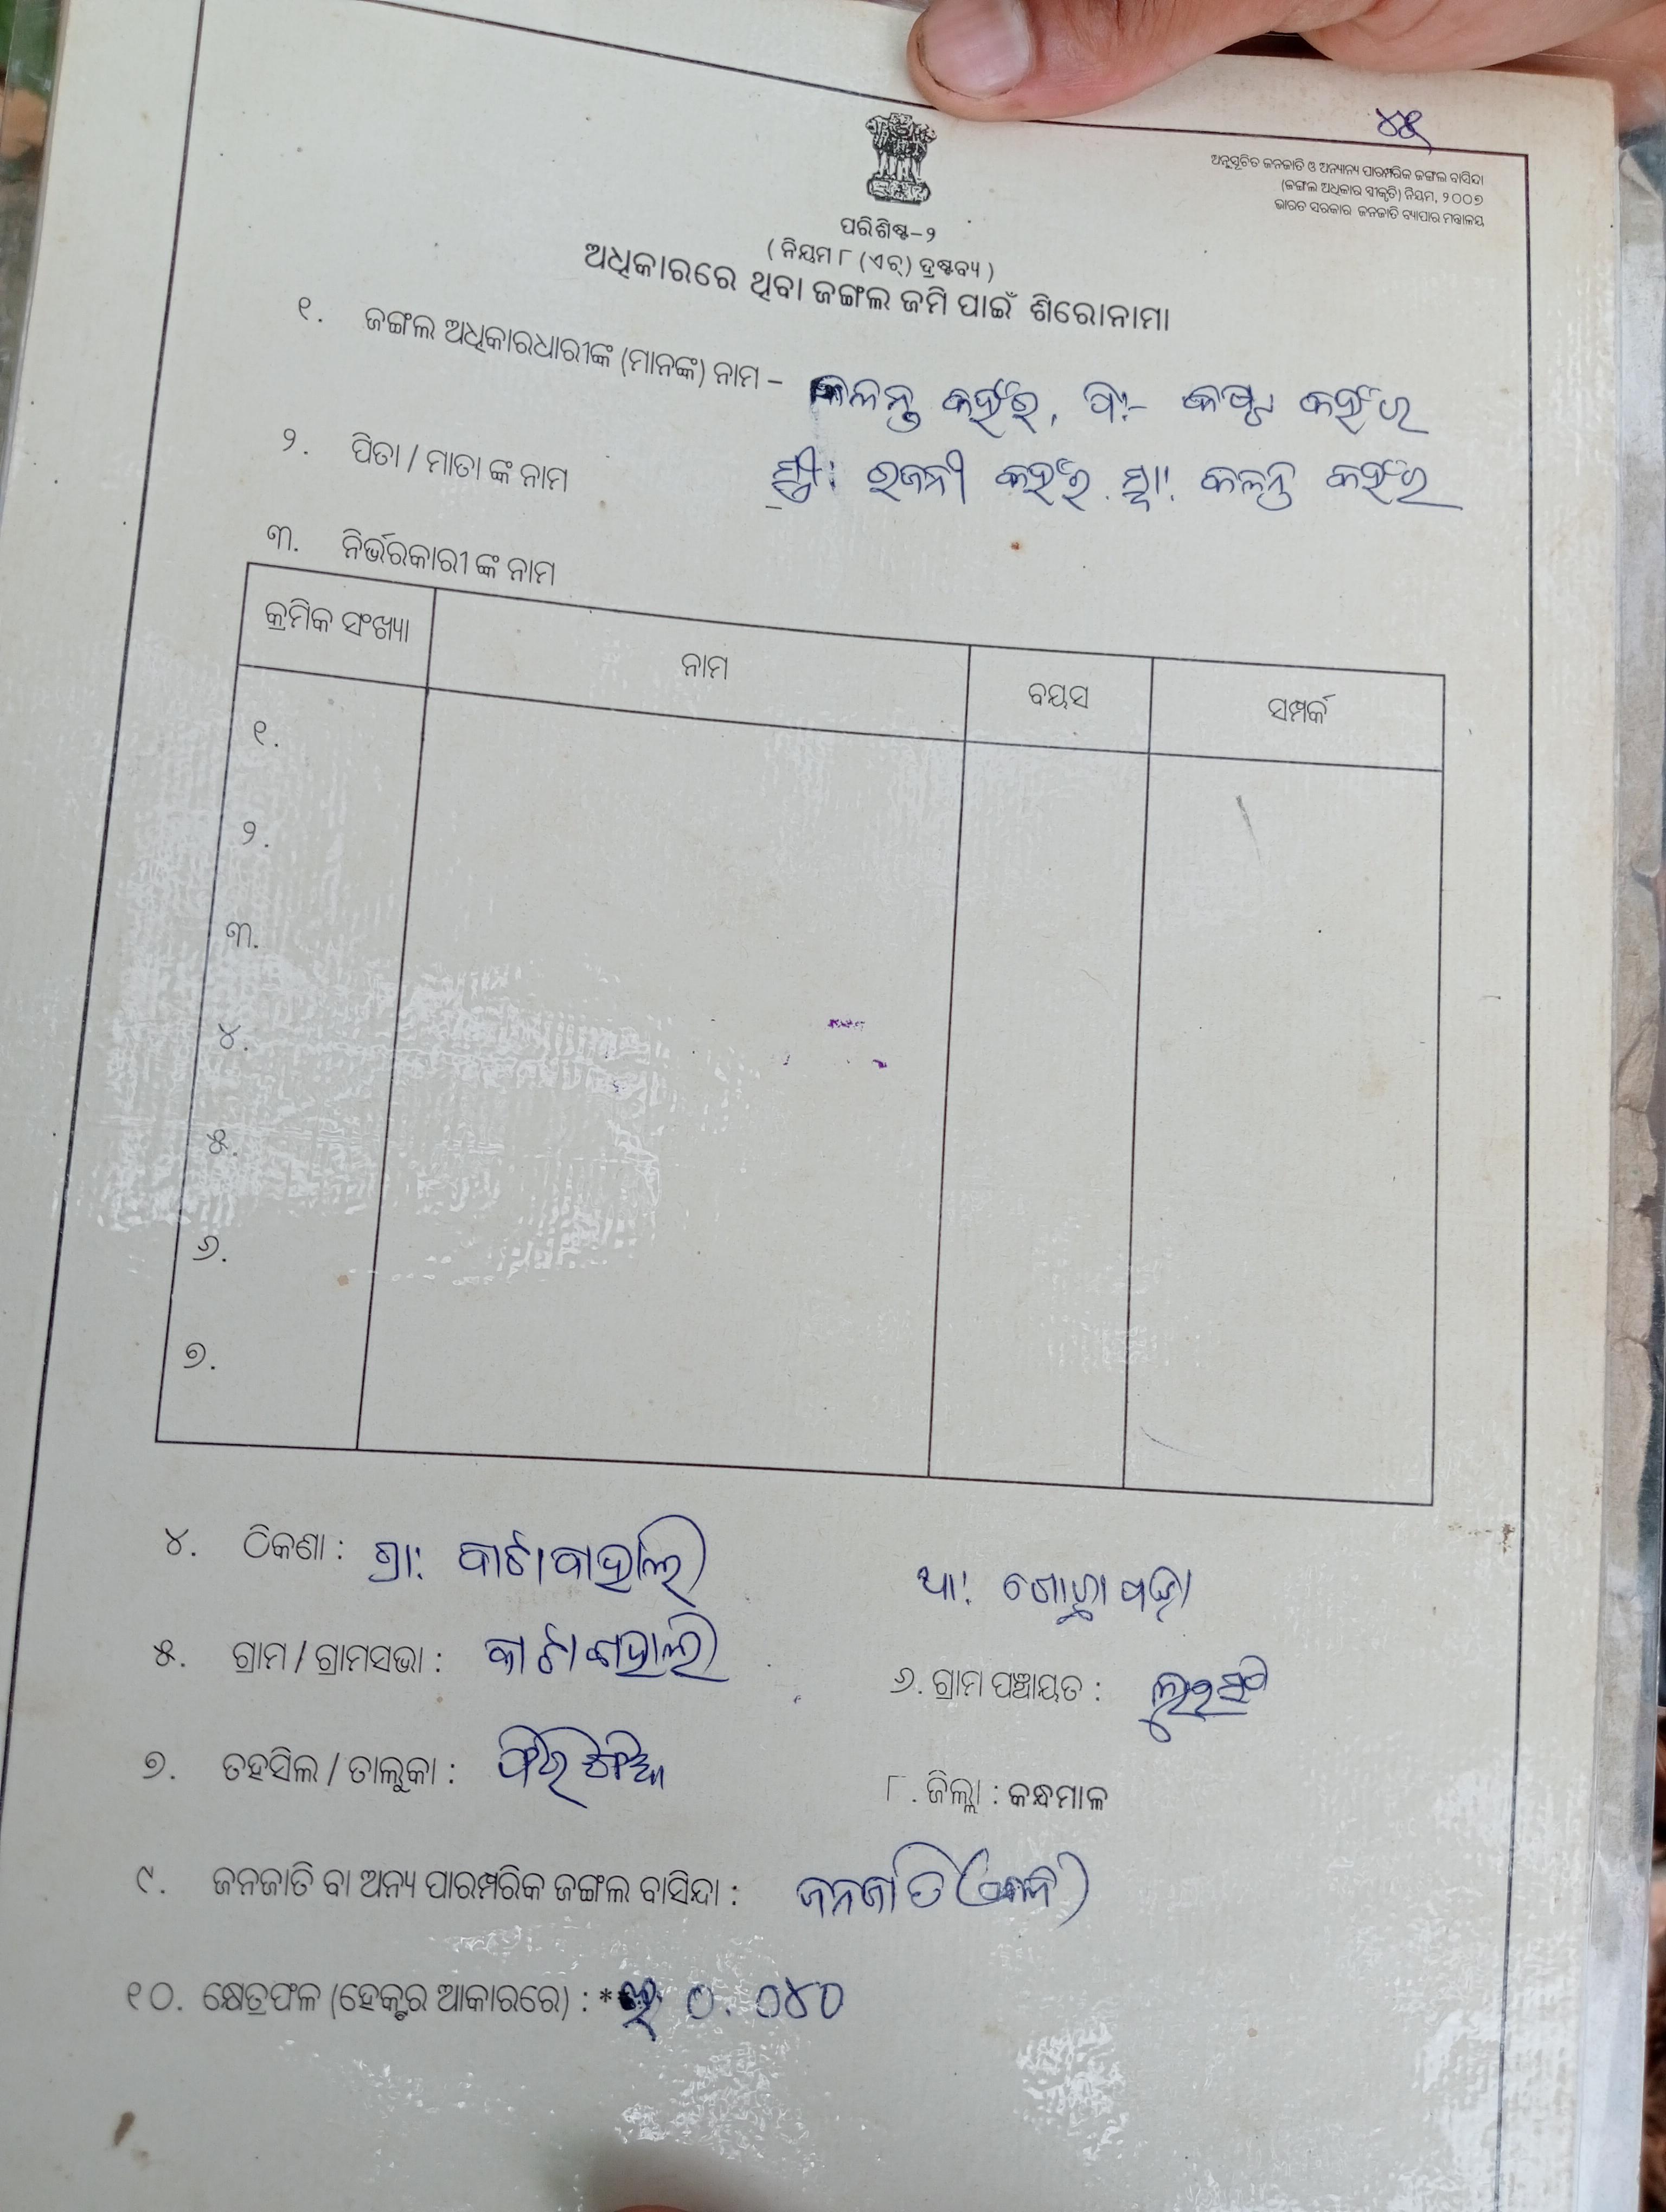 ୪୫
ଅନୁସୂଚିତ ଜନଜାତି ଓ ଅନ୍ୟାନ୍ୟ ପାରମ୍ପରିକ ଜଙ୍ଗଲ ବାସିନ୍ଦା
(ଜଙ୍ଗଲ ଅଧିକାର ସ୍ୱୀକୃତି) ନିୟମ, ୨୦୦୭
ଭାରତ ସରକାର ଜନଜାତି ବ୍ୟାପାର ମନ୍ତ୍ରାଳୟ
ପରିଶିଷ୍ଟ-୨
( ନିୟମ ୮ (ଏଚ୍) ଦ୍ରଷ୍ଟବ୍ୟ )
ଅଧିକାରରେ ଥିବା ଜଙ୍ଗଲ ଜମି ପାଇଁ ଶିରୋନାମା
୧. ଜଙ୍ଗଲ ଅଧିକାରଧାରୀଙ୍କ (ମାନଙ୍କ) ନାମ - କଳନ୍ତ କହଁର, ପି:-  କହଁର
୨. ପିତା / ମାତା ଙ୍କ ନାମ ସ୍ତ୍ରୀ: ରଜନୀ କହଁର ସ୍ୱା: କଳନ୍ତ କହଁର
୩. ନିର୍ଭରକାରୀ ଙ୍କ ନାମ
କ୍ରମିକ ସଂଖ୍ୟା ନାମ ବୟସ ସମ୍ପର୍କ
୧.
୨.
୩.
୪.
୫.
୬.
୭.
୪. ଠିକଣା : ଗ୍ରା: କାଟାବାହାଲି ଥା:
୫. ଗ୍ରାମ / ଗ୍ରାମସଭା :
୬. ଗ୍ରାମ ପଞ୍ଚାୟତ :
୭. ତହସିଲ / ତାଲୁକା : ଫିରିଙ୍ଗିଆ
୮. ଜିଲ୍ଲା : କନ୍ଧମାଳ
୯. ଜନଜାତି ବା ଅନ୍ୟ ପାରମ୍ପରିକ ଜଙ୍ଗଲ ବାସିନ୍ଦା : ଜନଜାତି
୧୦. କ୍ଷେତ୍ରଫଳ (ହେକ୍ଟର ଆକାରରେ) : ୦.୦୪୦